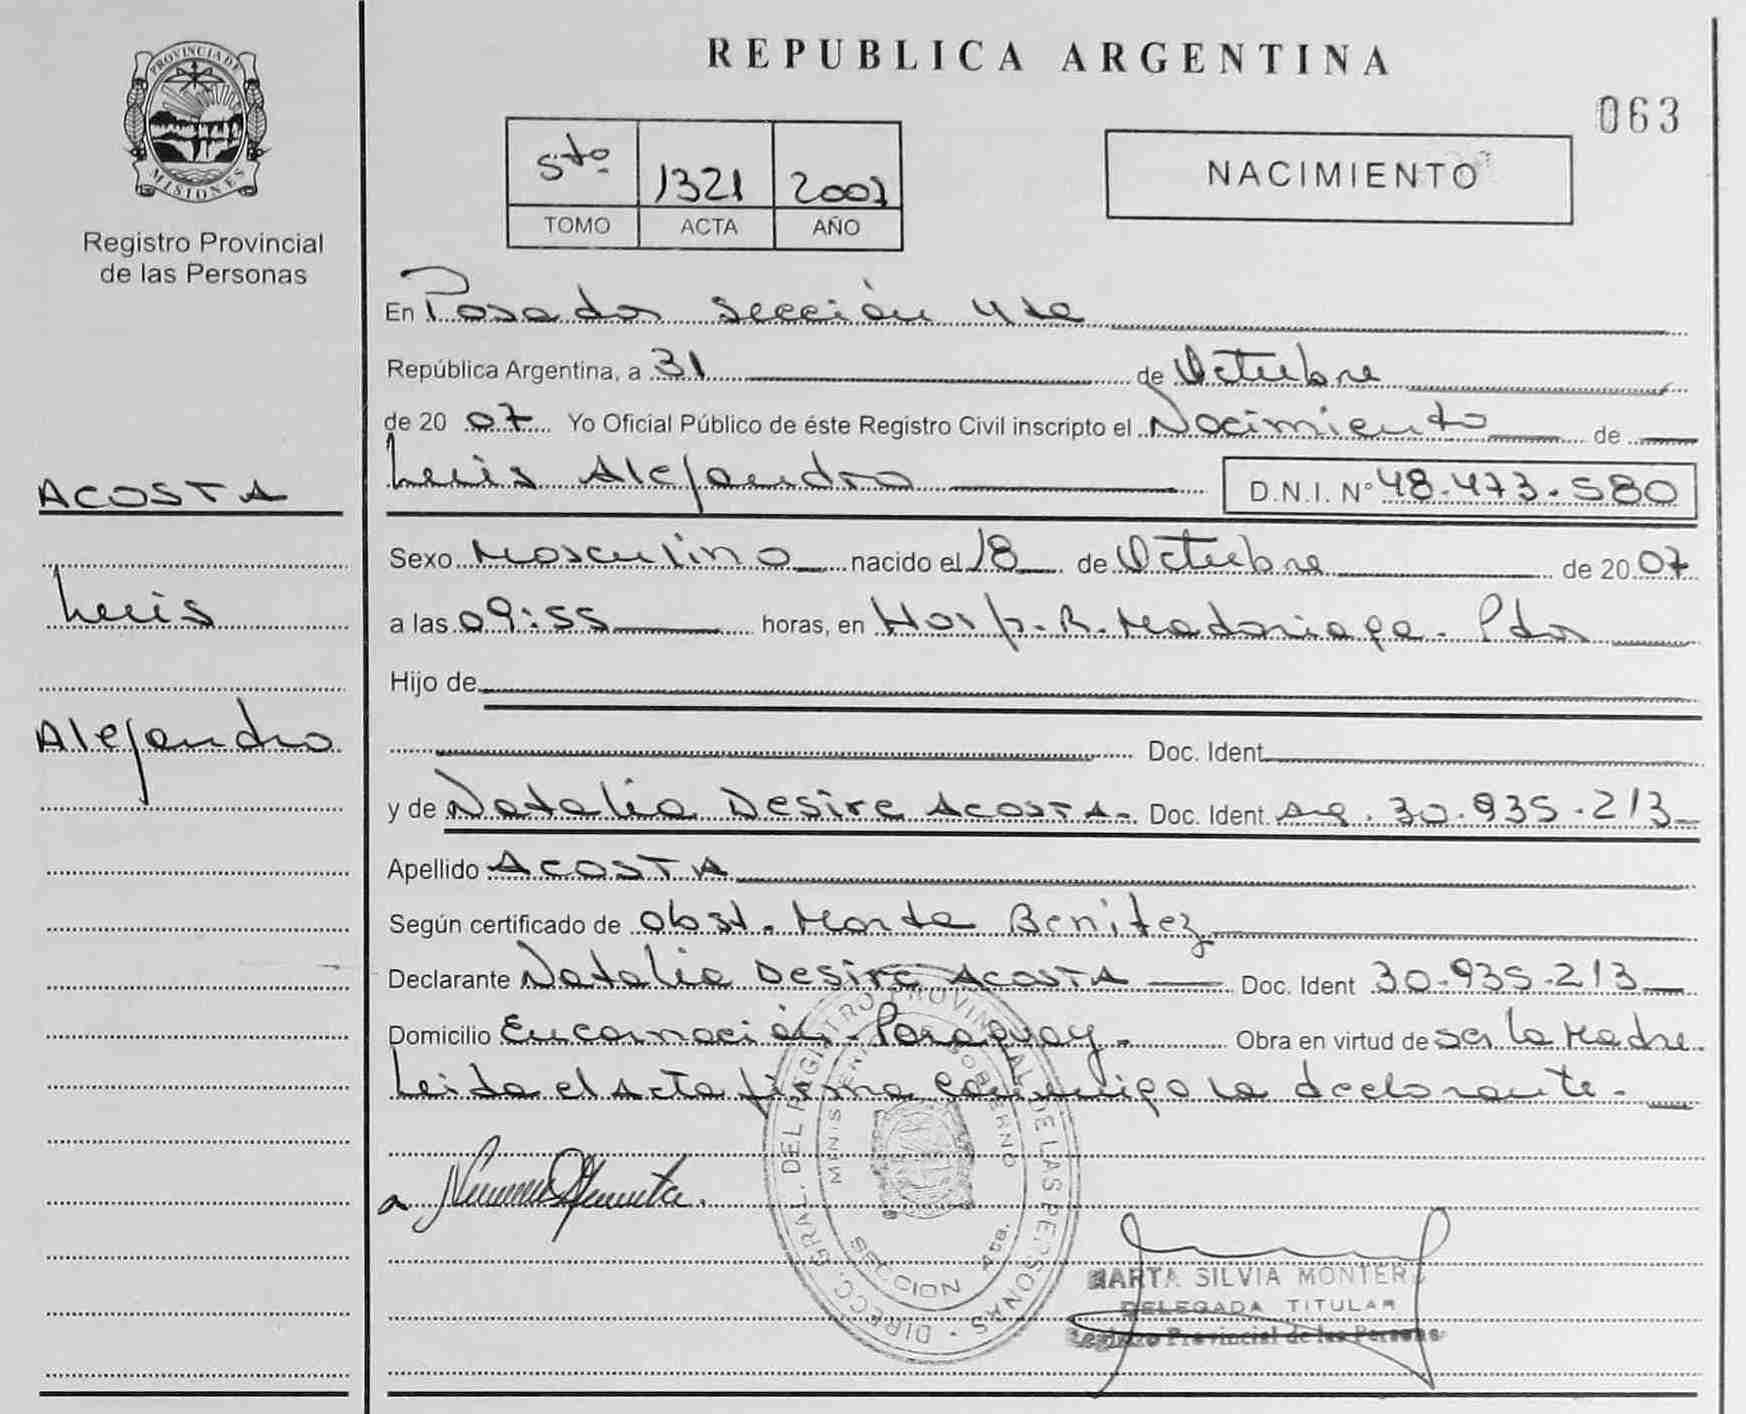 PROVINCIA DE MISIONES
Registro Provincial
de las Personas
ACOSTA
Luis
Alejandro
REPUBLICA ARGENTINA
063
5to 1321 2007
TOMO ACTA AÑO
NACIMIENTO
En Posadas sección 4ta
República Argentina, a 31 de Octubre
de 20 07 Yo Oficial Público de éste Registro Civil inscripto el Nacimiento de
Luis Alejandro D.N.I. N° 48.473.580
Sexo Masculino nacido el 18 de Octubre de 20 07
a las 09:55 horas, en Hosp. R. Madariaga. Pdas
Hijo de
Doc. Ident.
y de Natalia Desire ACOSTA Doc. Ident. Arg. 30.935.213
Apellido ACOSTA
Según certificado de Obst. Marta Benitez
Declarante Natalia Desire ACOSTA Doc. Ident 30.935.213
Domicilio Encarnación - Paraguay. Obra en virtud de ser la Madre.
Leida el Acta firma conmigo la declarante.
DIRECC. GRAL. DEL REGISTRO PROVINCIAL DE LAS PERSONAS
GOBIERNO
SECCION 4ta.
MARTA SILVIA MONTERO
DELEGADA TITULAR
Registro Provincial de las Personas